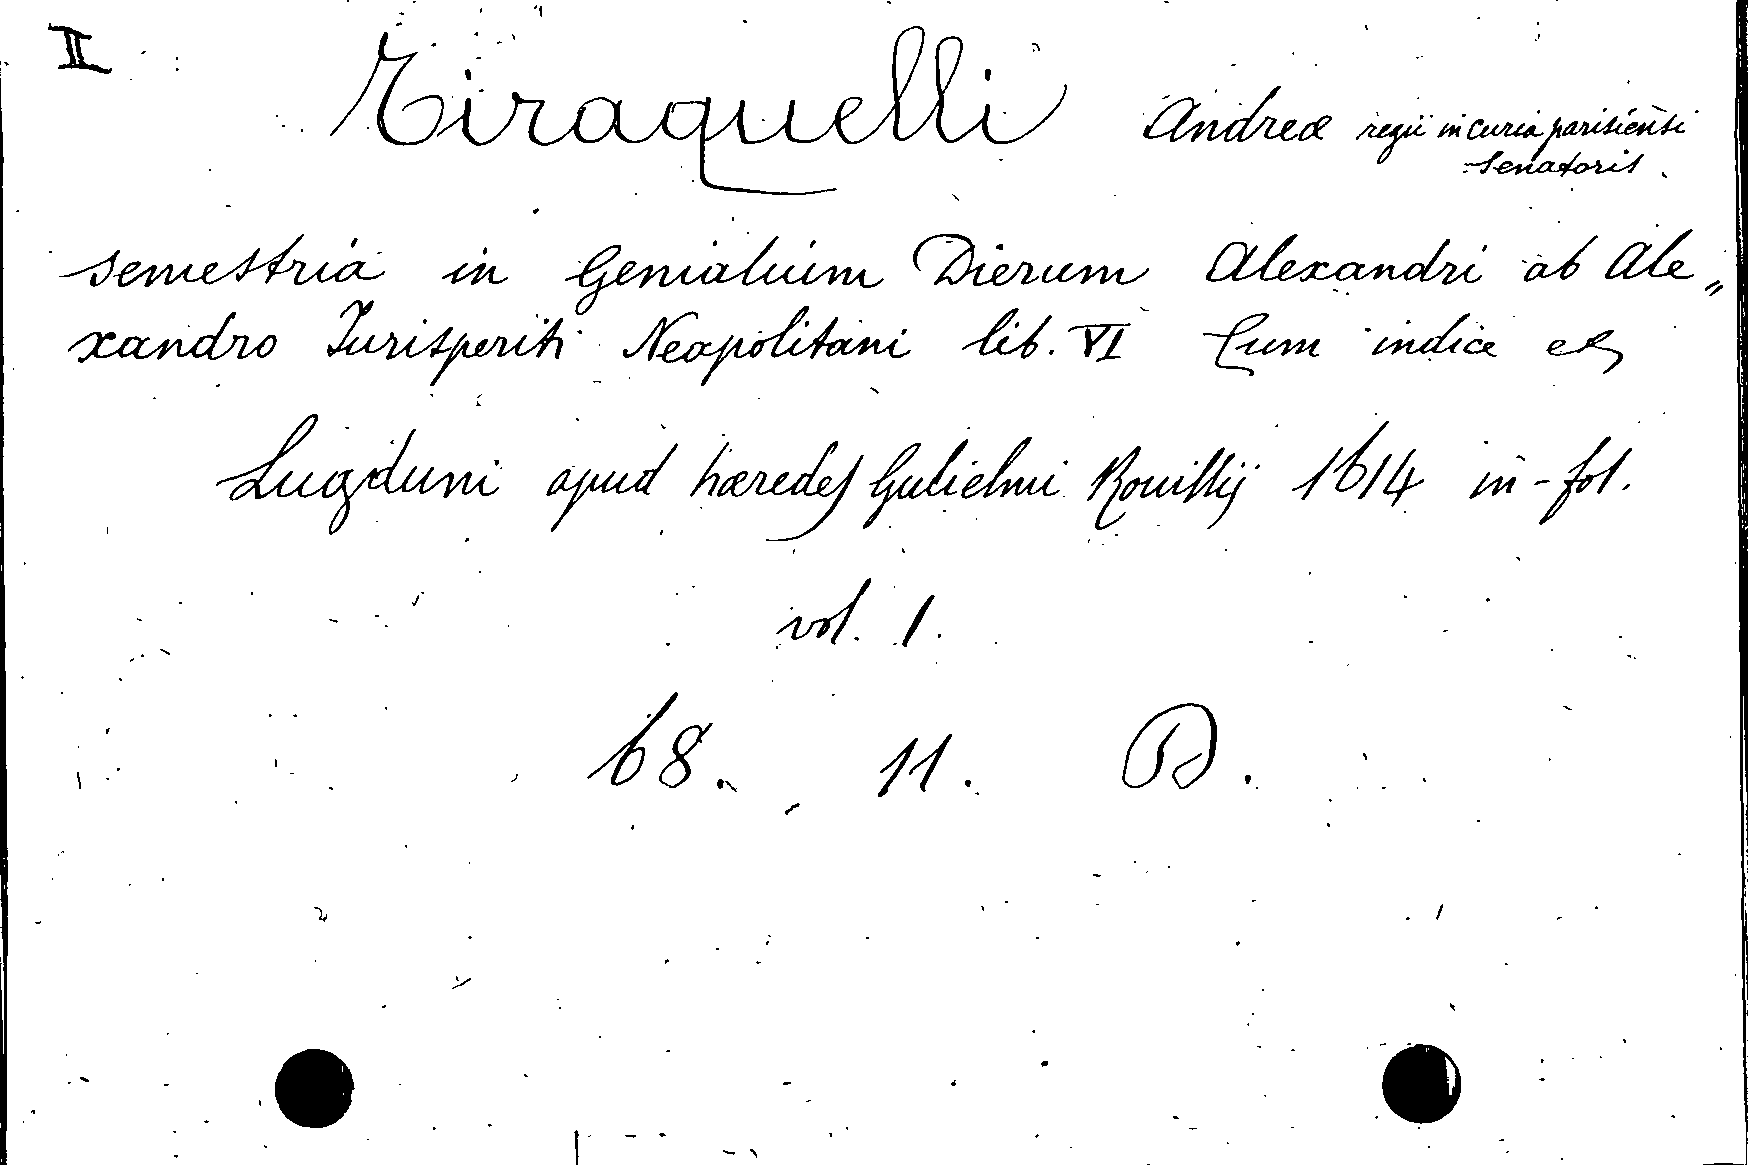 II
Tiraquelli Andreæ regii in curia parisiensi
senatoris.
semestria in Genialium Dierum Alexandri ab Ale„
xandro Jurisperiti Neapolitani lib. VI Cum indice
Lugduni apud hæredes Gulielmi Rouillij 1614 in-fol.
vol. 1.
68. 11. D.